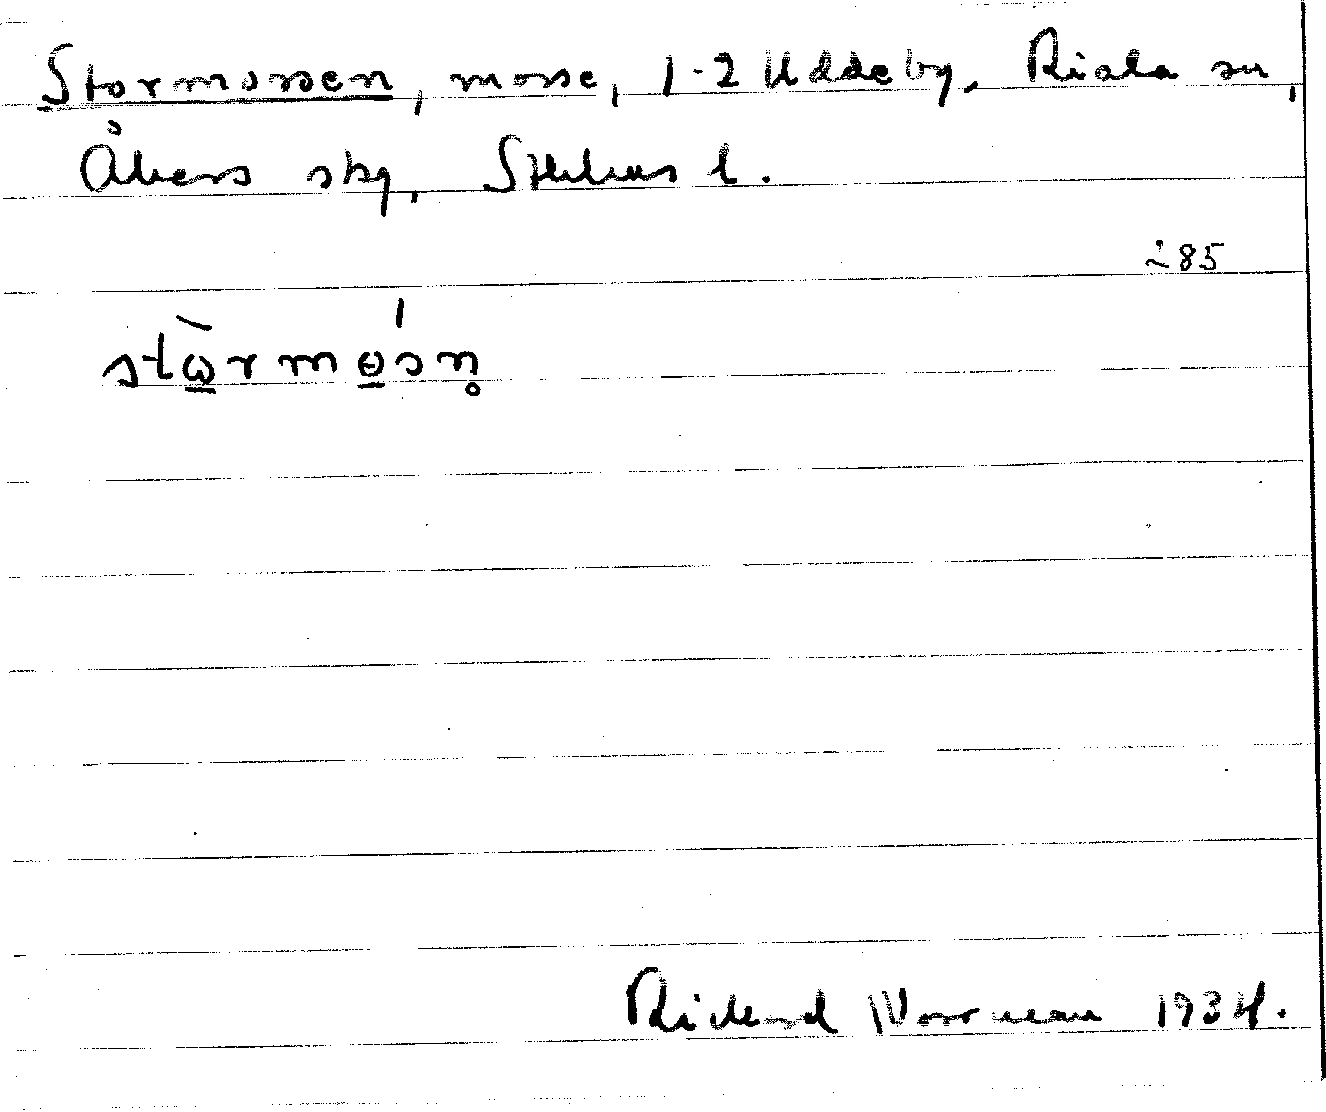 Stormossen, mosse, 1-2 Uddeby, Riala sn,
Åkers skg, Sthlms l.
285
stωrmɵsn̥
Rickard Norrman 1934.